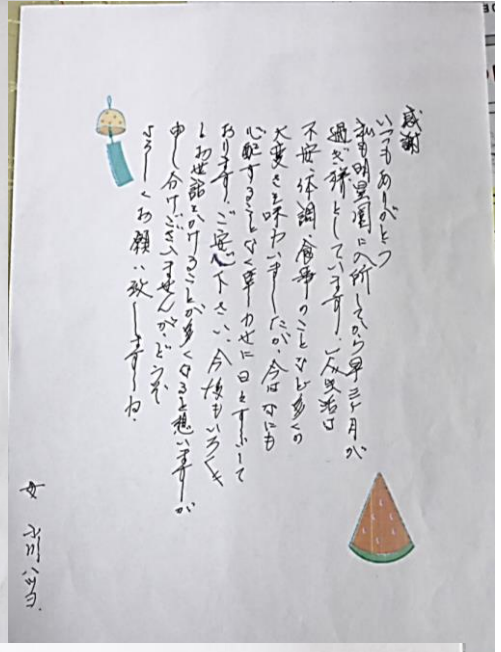 感謝
いつもありがとう
私も明星園に入所してから早三ヶ月が
過ぎ様としています。生活は
不安、体調、食事のことなど多くの
大変さを味わいましたが、今はなにも
心配することなく幸わせに日々すごして
おります。ご安心下さい。今後もいろいろ
とお世話をかけることが多くなると想いますが
申し分けございませんが、どうぞ
よろしくお願い致しますね。
小川ハツヨ.